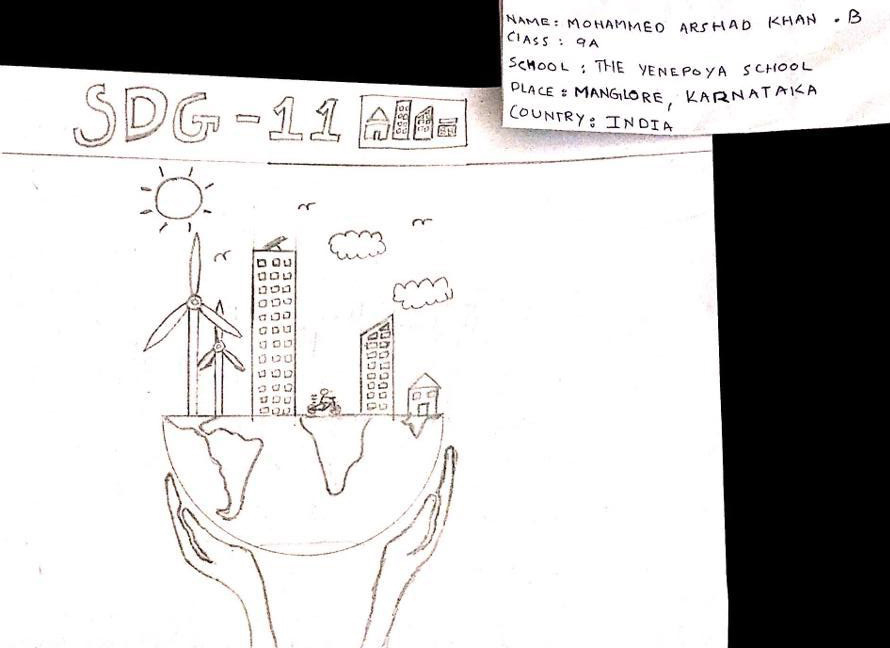 NAME: MOHAMMED ARSHAD KHAN . B
CLASS : 9A
SCHOOL : THE YENEPOYA SCHOOL
PLACE : MANGLORE, KARNATAKA
COUNTRY: INDIA
SDG-11